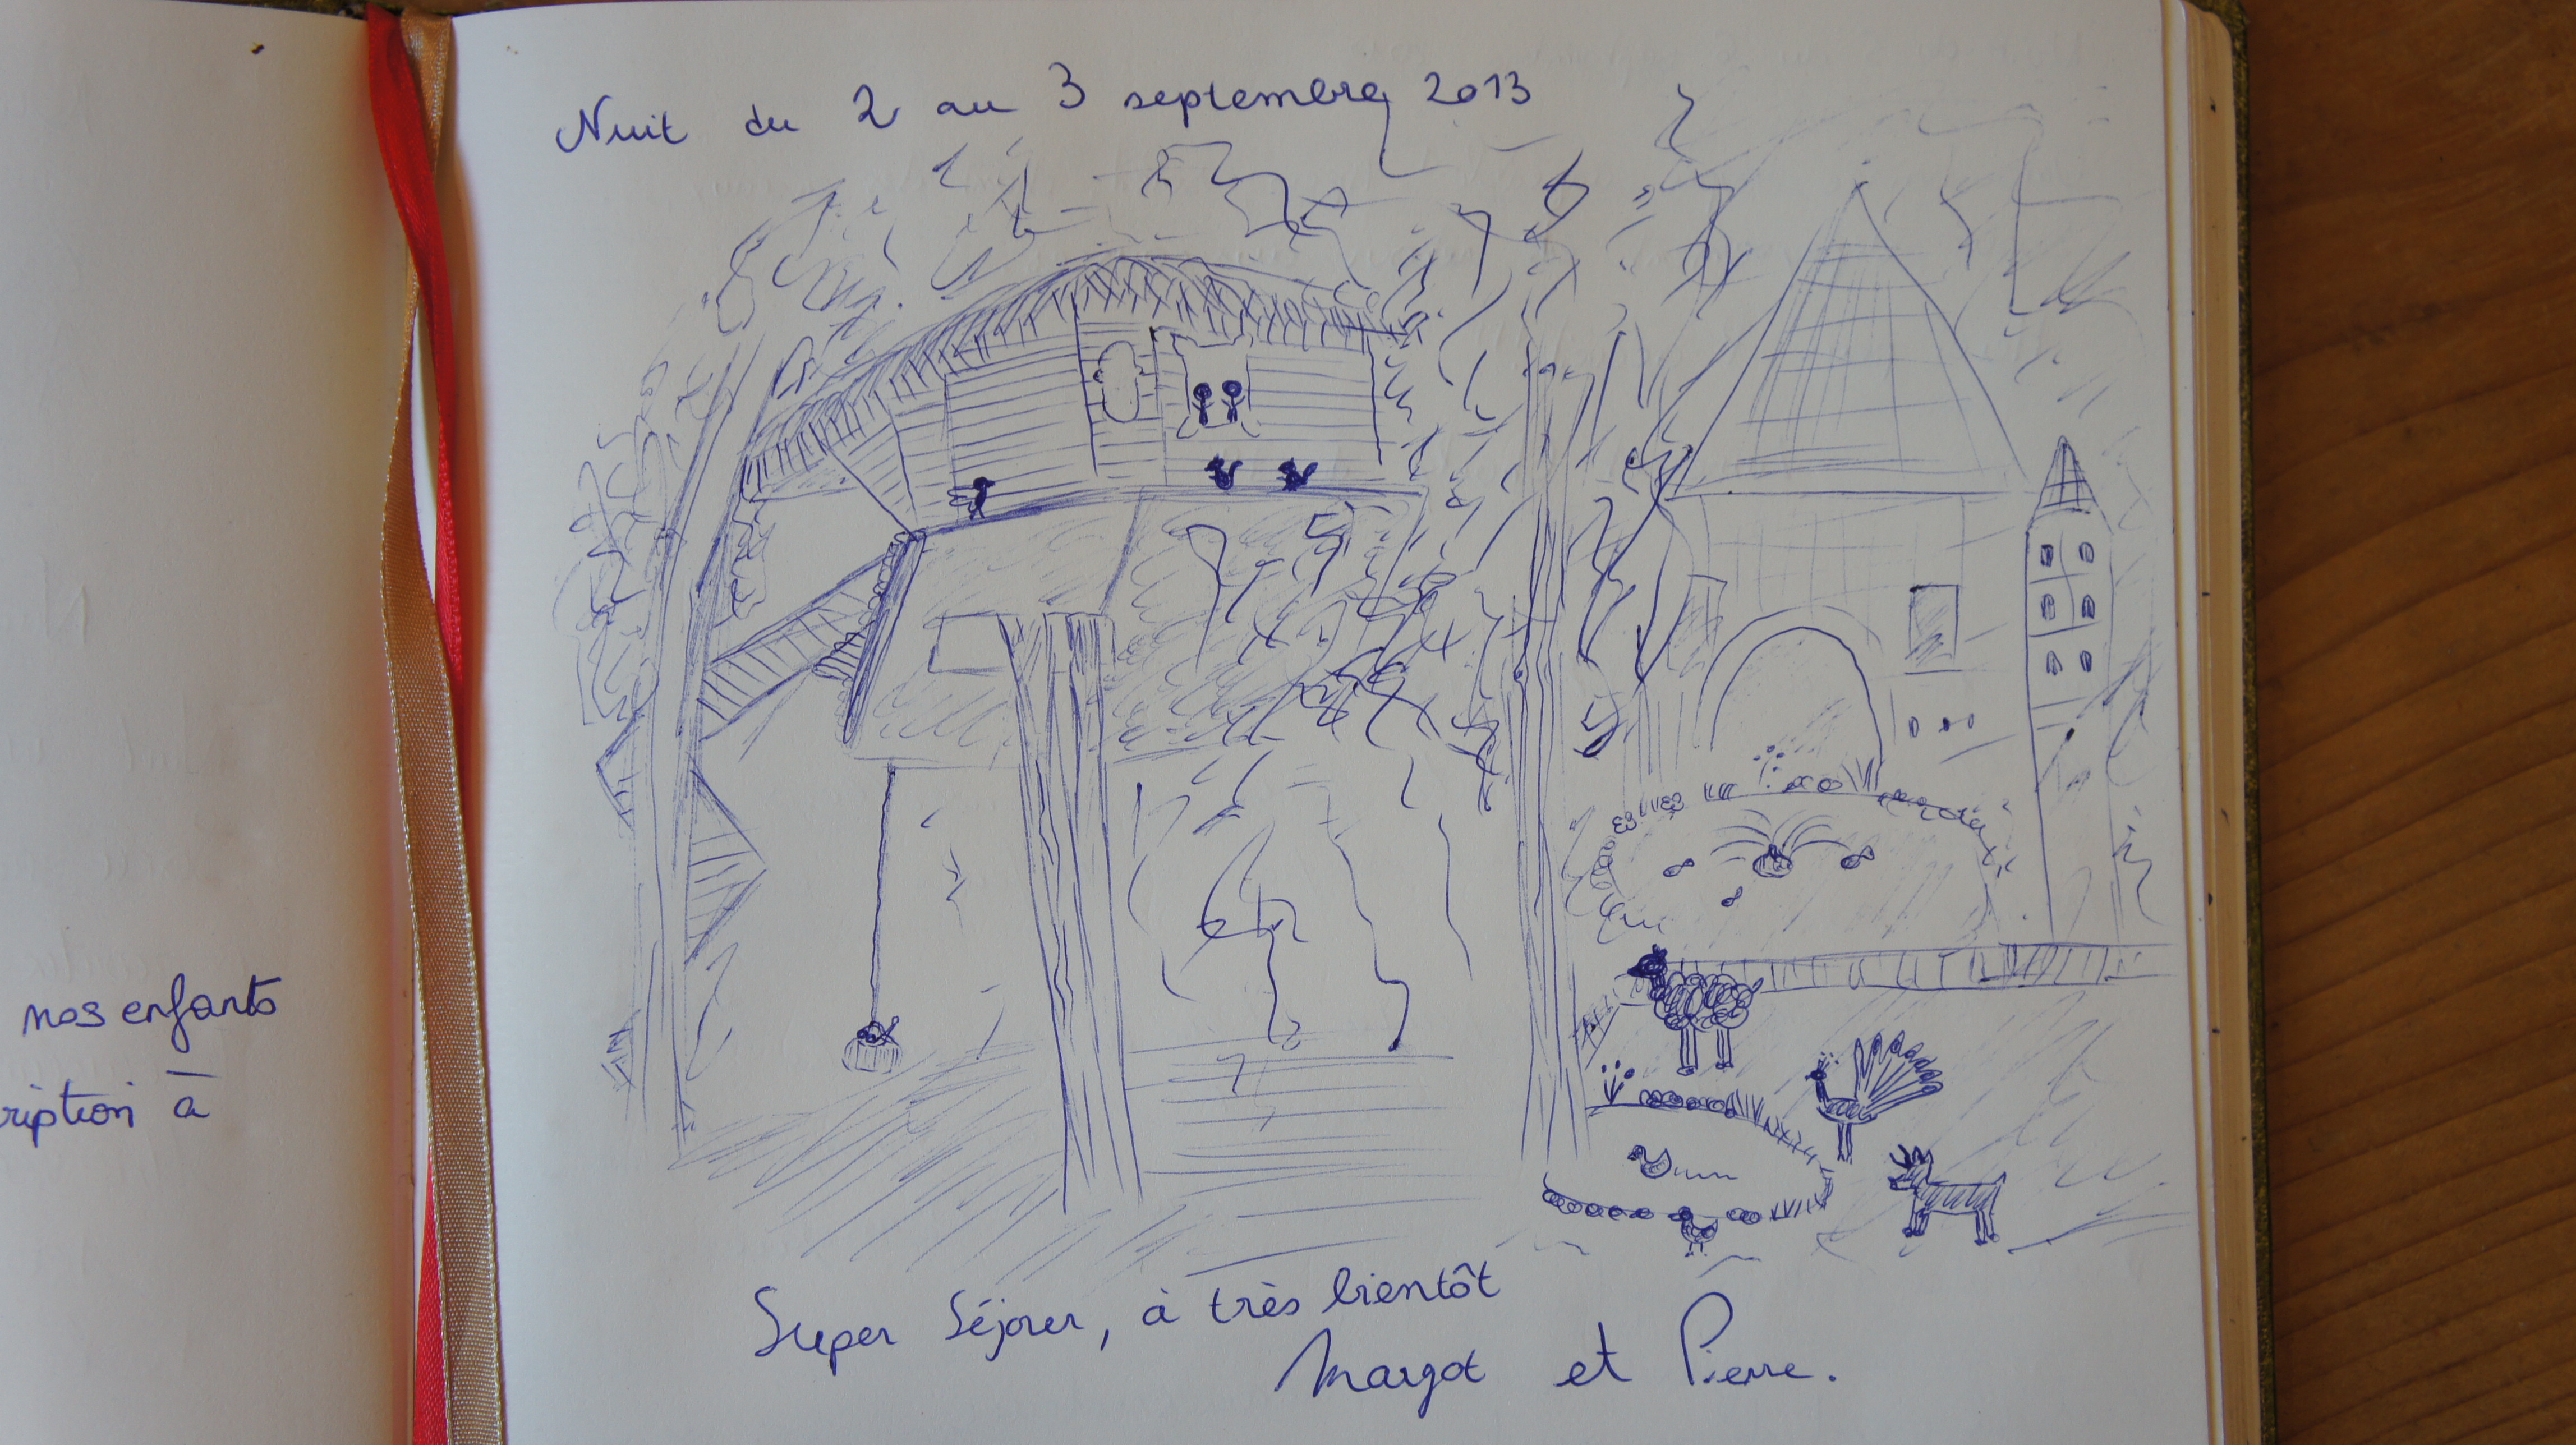 nos enfants
ription à
Nuit du 2 au 3 septembre 2013
Super Séjour, à très bientôt
Margot et Pierre.